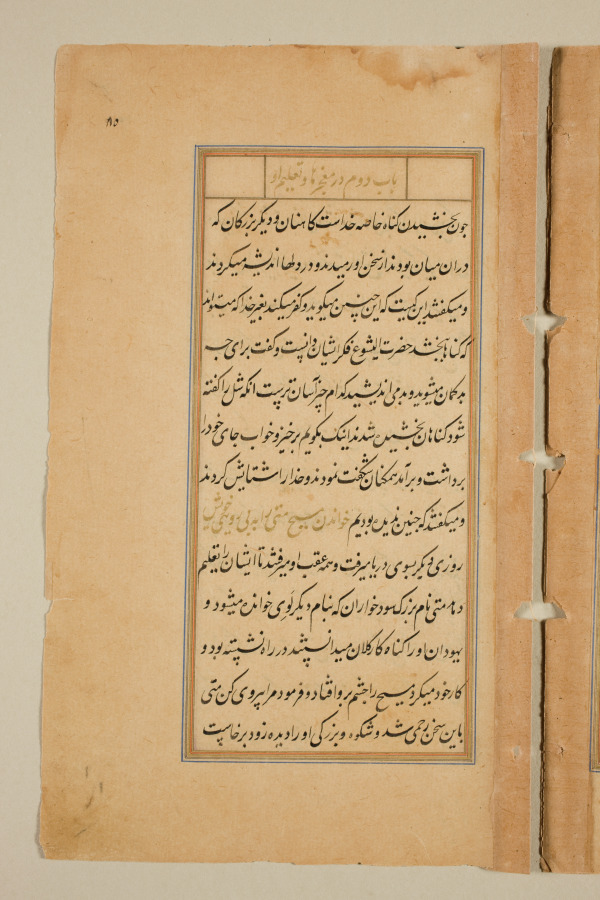 ۸۵
باب دوم در معجزها و تعلیم او
چون بخشیدن گناه خاصه خداست کاهنان و دیگر بزرگان که
دران میان بودند از سخن او رمیدند و در دلها اندیشه میکردند
و میگفتند این کیست که این چنین میگوید و کفر میکند بغیر خدا که میتواند
که گناها بخشد حضرت ایشوع فکر ایشان دانست و گفت برای چه
بد گمان میشوید و بدی اندیشید کدام چیز آسان ترست انکه شل را گفته
شود گناهان بخشیده شدند اینک بگویم برخیز و خواب جای خود را
برداشت و برآمد همکنان شگفت نمودند و خدا را ستایش کردند
و میگفتند که چنین ندیده بودیم خواندن مسیح متی را به پی روی خویش
روزی دیگر بسوی دریا میرفت و همه عقب او میرفتند تا ایشان را تعلیم
دهد متی نام بزرگ سود خواران که بنام دیگر لوی خوانده میشود و
یهودان او را گناه کار کلان میدانستند در راه نشسته بود و
کار خود میکرد مسیح را چشم برو افتاد و فرمود مرا پیروی کن متی
باین سخن رحمی شد و شکوه و بزرگی او را دیده زود برخاست